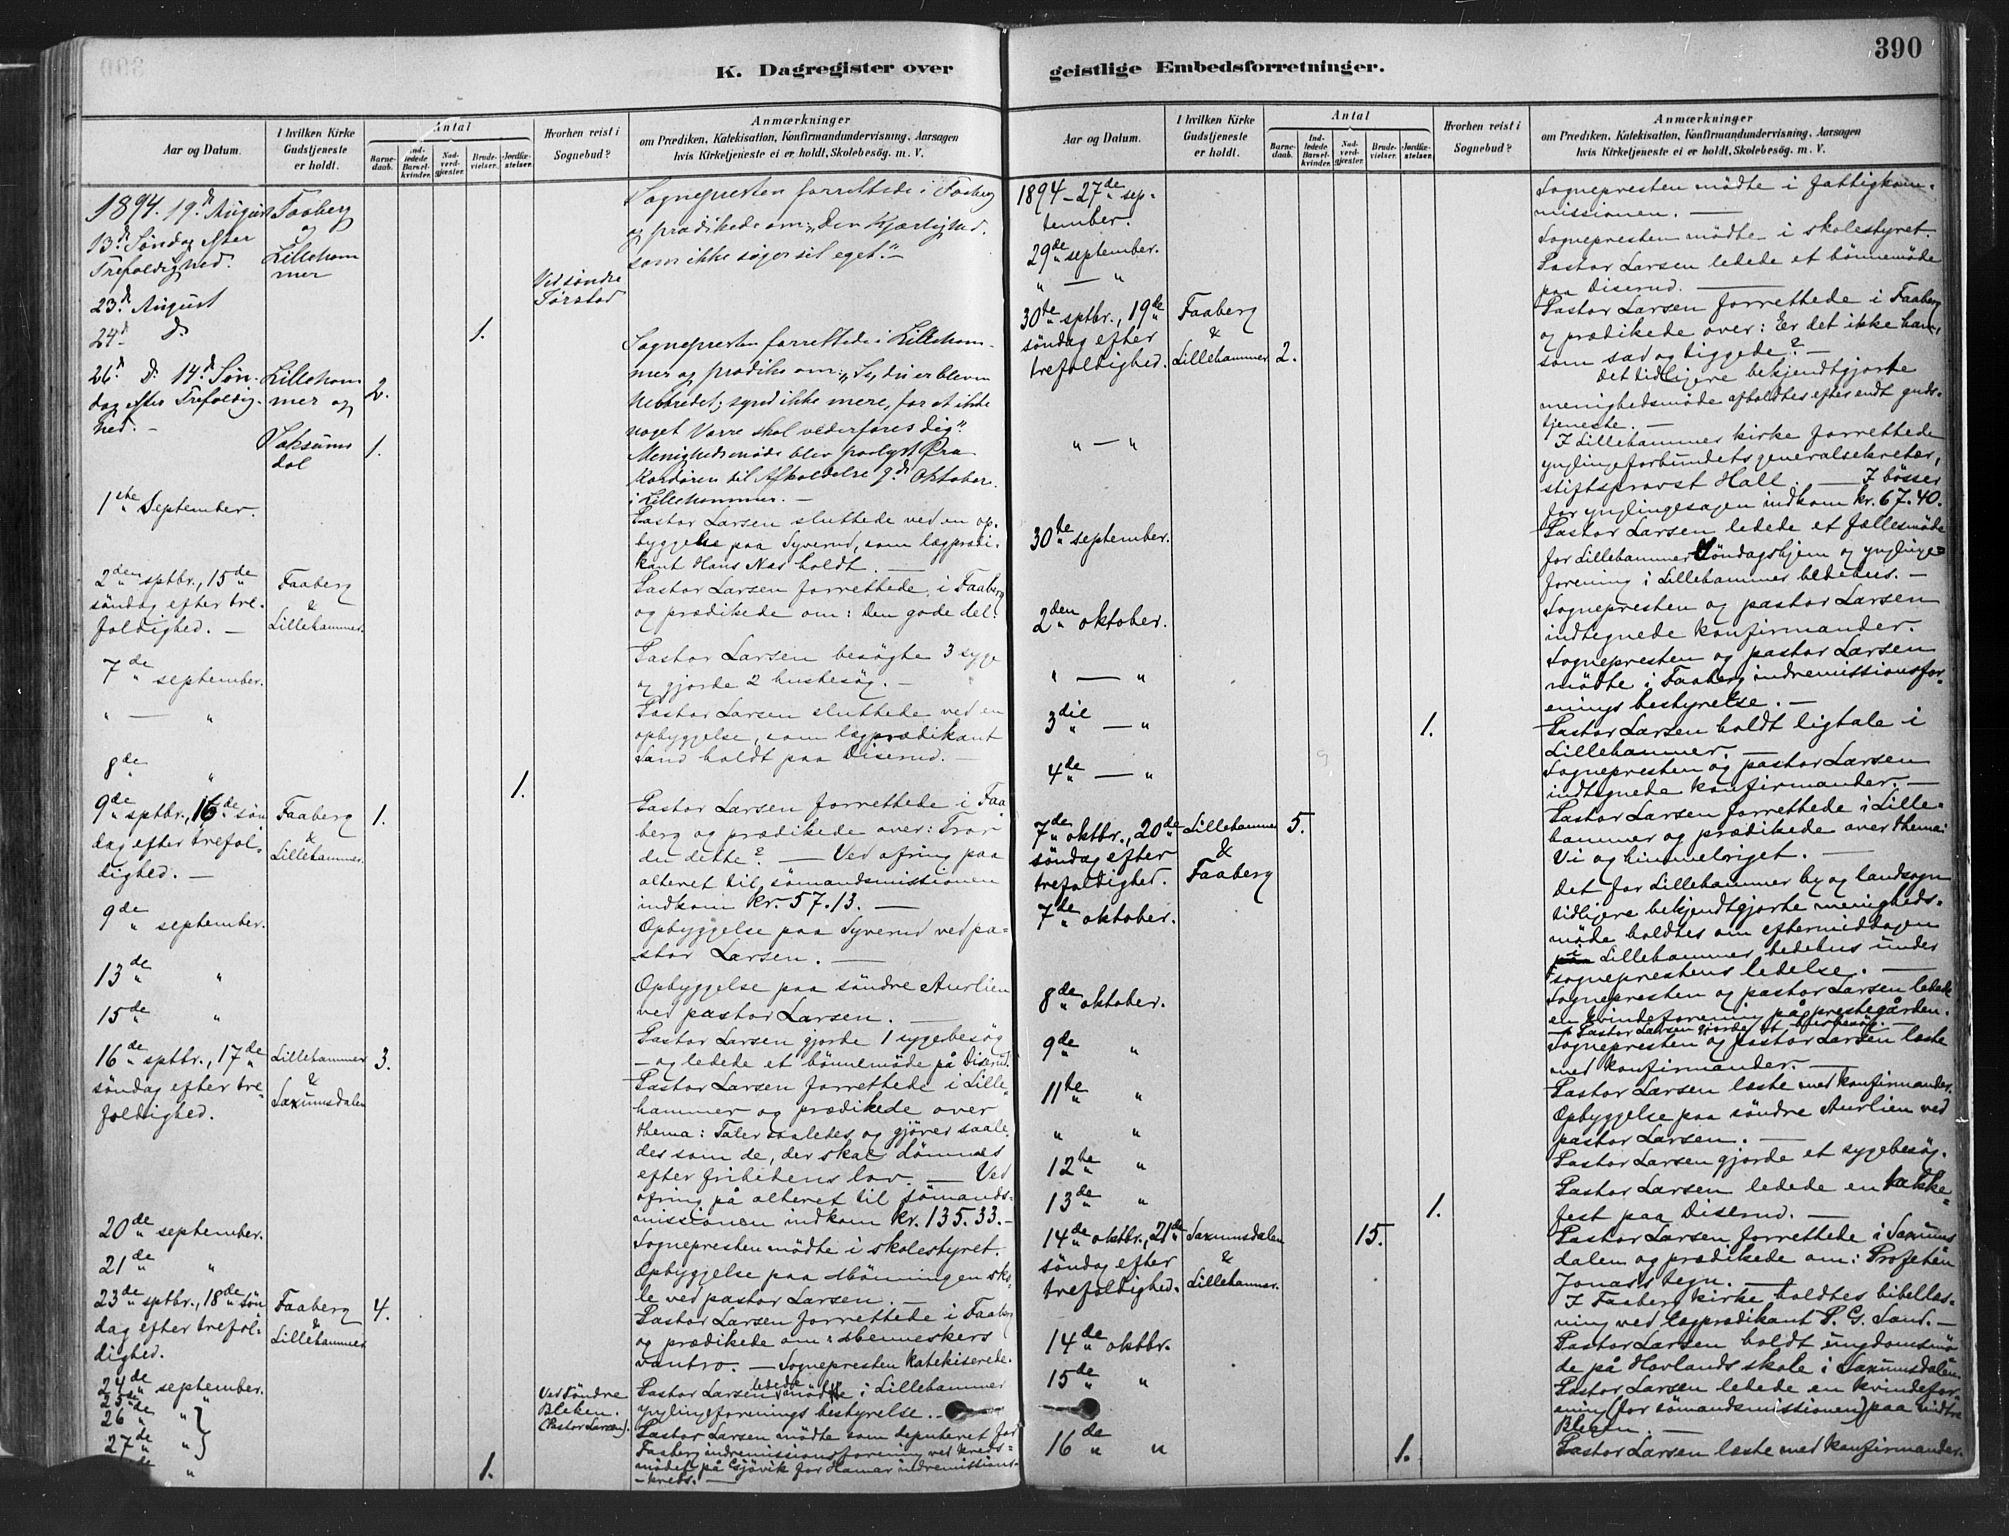 K. Dagregister over
Aar og Datum.
I hvilken Kirke
Gudstjeneste
er holdt.
Antal
Barne-
daab.
Ind-
ledede
Barsel-
kvinder.
Nad-
verd-
gjæster.
Brude-
vielser.
Jordfæ-
stelser.
Hvorhen reist i
Sognebud?
Anmærkninger
om Prædiken, Katekisation, Konfirmandundervisning, Aarsagen
hvis Kirketjeneste ei er holdt, Skolebesøg. m. V.
1894. 19. August
13. Søndag efter
Trefoldighed.
Faaberg
og
Lilleham
mer
Sognepresten forrettede i Faaberg
og prædikede om: „Den Kjærlighed.
som ikke søger sit eget." –
23. August
Ved søndre
Jørstad
24. d
1.
26. D. 14. Søn-
dag efter Trefoldig-
hed. –
Lilleham
mer og
2.
Saksums
dal
1.
Sognepresten forrettede i Lilleham-
mer og prædike om: „Se, du er bleven
helbredet; synd ikke mere, for at ikke
noget Værre skal vederfares dig".
Menighedsmøde blev forlyst fra
Kordøren til Afholdelse 7. Oktober
i Lillehammer. –
1ste September.
Pastor Larsen sluttede ved en op-
byggelse paa Syverud, som lægprædi-
kant Hans Næs holdt. –
2den sptbr., 15de
søndag efter tre-
foldighed. –
Faaberg
&
Lillehammer.
Pastor Larsen forrettede i Faaberg
og prædikede om: Den gode del.
7de september.
Pastor Larsen besøgte 3 syge
og gjorde 2 husbesøg. –
" — "
Pastor Larsen sluttede ved en
opbyggelse, som lægprædikant
Sand holdt paa Diserud. –
8de "
1.
9de sptbr., 16de søn
dag efter trefol-
dighed. –
Faaberg
&
Lillehammer.
1.
Pastor Larsen forrettede i Faa
berg og prædikede over: Tror
du dette? – Ved ofring paa
alteret til sømandsmissionen
indkom kr. 57.13. –
9de september.
Opbyggelse paa Syverud ved pa-
stor Larsen. –
13de "
Opbyggelse paa søndre Aurlien
ved pastor Larsen. –
15de "
Pastor Larsen gjorde 1 sygebesøg
– og ledede et bønnemøde på Diserud.
16de sptbr., 17de
søndag efter tre-
foldighed.
Lillehammer
&
Saxumsdalen
3.
Pastor Larsen forrettede i Lille
hammer og prædikede over
thema: Taler saaledes og gjører saale
des som de, der skal dømmes
efter frihedens lov. – Ved
ofring på alteret til sømands-
missionen indkom kr. 135.33. –
20de september.
Sognepresten mødte i skolestyret.
21de "
Opbyggelse paa Rønningen sko-
le ved pastor Larsen. –
23de sptbr., 18de søn
dag efter trefol-
dighed.
Faaberg
&
Lillehammer
4.
Pastor Larsen forrettede i Faaberg
og prædikede om: Menneskers
vantro. – Sognepresten katekiserede.
24de september.
25de "
26de "
27de "
Ved søndre
Bleken.
(Pastor Larsen).
Pastor Larsen ledede i Lillehammer
ynglingeforenings bestyrelse. –
Pastor Larsen mødte som deputeret for
Faaberg indremissionsforening ved kreds-
mødet på Gjøvik for Hamar indremissions-
-kreds. –
1.
geistlige Embedsforretninger.
390
Aar og Datum.
I hvilken Kirke
Gudstjeneste
er holdt.
Antal
Barne-
daab.
Ind-
ledede
Barsel-
kvinder.
Nad-
verd-
gjæster.
Brude-
vielser.
Jordfæ-
stelser.
Hvorhen reist i
Sognebud?
Anmærkninger
om Prædiken, Katekisation, Konfirmandundervisning, Aarsagen
hvis Kirketjeneste ei er holdt, Skolebesøg. m. V.
1894 – 27de sep-
tember.
Sognepresten mødte i fattigkom-
missionen. –
29de september.
Sognepresten mødte i skolestyret.
" — "
Pastor Larsen ledede et bønnemøde
paa Diserud. –
30te sptbr., 19de
søndag efter
trefoldighed.
Faaberg
&
Lillehammer
2.
Pastor Larsen forrettede i Faaberg
og prædikede over: Er det ikke han,
som sad og tiggede? –
Det tidligere bekjendtgjorte
menighedsmøde afholdtes efter endt guds-
tjeneste. –
" — "
I Lillehammer kirke forrettede
ynglingeforbundets generalsekretær,
stiftsprovst Hall. – I bøsser
for ynglingesagen indkom kr. 67.40.
30te september.
Pastor Larsen ledede et fællesmøde
for Lillehammer Søndagshjem og ynglinge-
forening i Lillehammer bedehus. –
2den oktober.
Sognepresten og pastor Larsen
indtegnede konfirmander.
" — "
Sognepresten og pastor Larsen
mødte i Faaberg indremissionsfor-
enings bestyrelse. –
3die — "
1.
Pastor Larsen holdt ligtale i
Lillehammer. –
4de — "
Sognepresten og pastor Larsen
indtegnede konfirmander. –
7de oktbr., 20de
søndag efter
trefoldighed.
Lillehammer
&
Faaberg
5.
Pastor Larsen forrettede i Lille-
hammer og prædikede over thema:
Vi og himmelriget. –
7de oktober.
Det for Lillehammer by og landsogn
tidligere bekjendtgjorte menigheds-
møde holdtes om eftermiddagen
i Lillehammer bedehus under
sogneprestens ledelse. –
8de oktober.
Sognepresten og pastor Larsen ledede
en kvindeforening på prestegården.
– Pastor Larsen gjorde et sygebesøg. –
9de "
Sognepresten og pastor Larsen læste
med konfirmander. –
11te "
Pastor Larsen læste med konfirmander.
" "
Opbyggelse paa søndre Aurlien ved
pastor Larsen. –
12te "
Pastor Larsen gjorde et sygebesøg.
13de "
1.
Pastor Larsen ledede en takke-
fest paa Diserud. –
14de oktbr., 21de
søndag efter
trefoldighed.
Saxumsdalen
&
Lillehammer.
15.
Pastor Larsen forrettede i Saxums
dalen og prædikede om: Profeten
Jonas's tegn. –
I Faaberg kirke holdtes bibellæs-
ning ved lægprædikant P. G. Sand. –
14de oktbr.
Pastor Larsen holdt ungdomsmø-
de på Hovlands skole i Saxumsdalen.
15de "
Pastor Larsen ledede en kvindefor-
ening (for sømandsmissionen) paa midtre
Bleken. –
16de "
1.
Pastor Larsen læste med konfirmander.